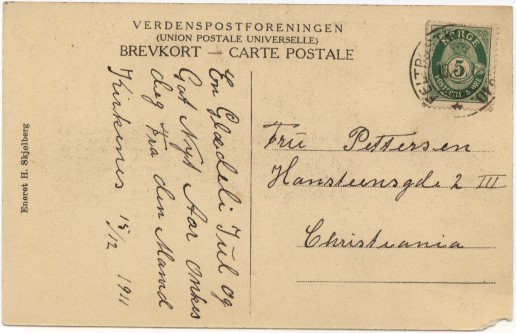 VERDENSPOSTFORENINGEN
(UNION POSTALE UNIVERSELLE)
BREVKORT — CARTE POSTALE
NORGE
5
En Glædeli Jul og
Got Nyt Aar Önkes
deg Fra den Mand
Kirkenes 15/12 1911
Fru Pettersen
Hansteensgde 2 III
Christiania
Eneret H. Skjølberg